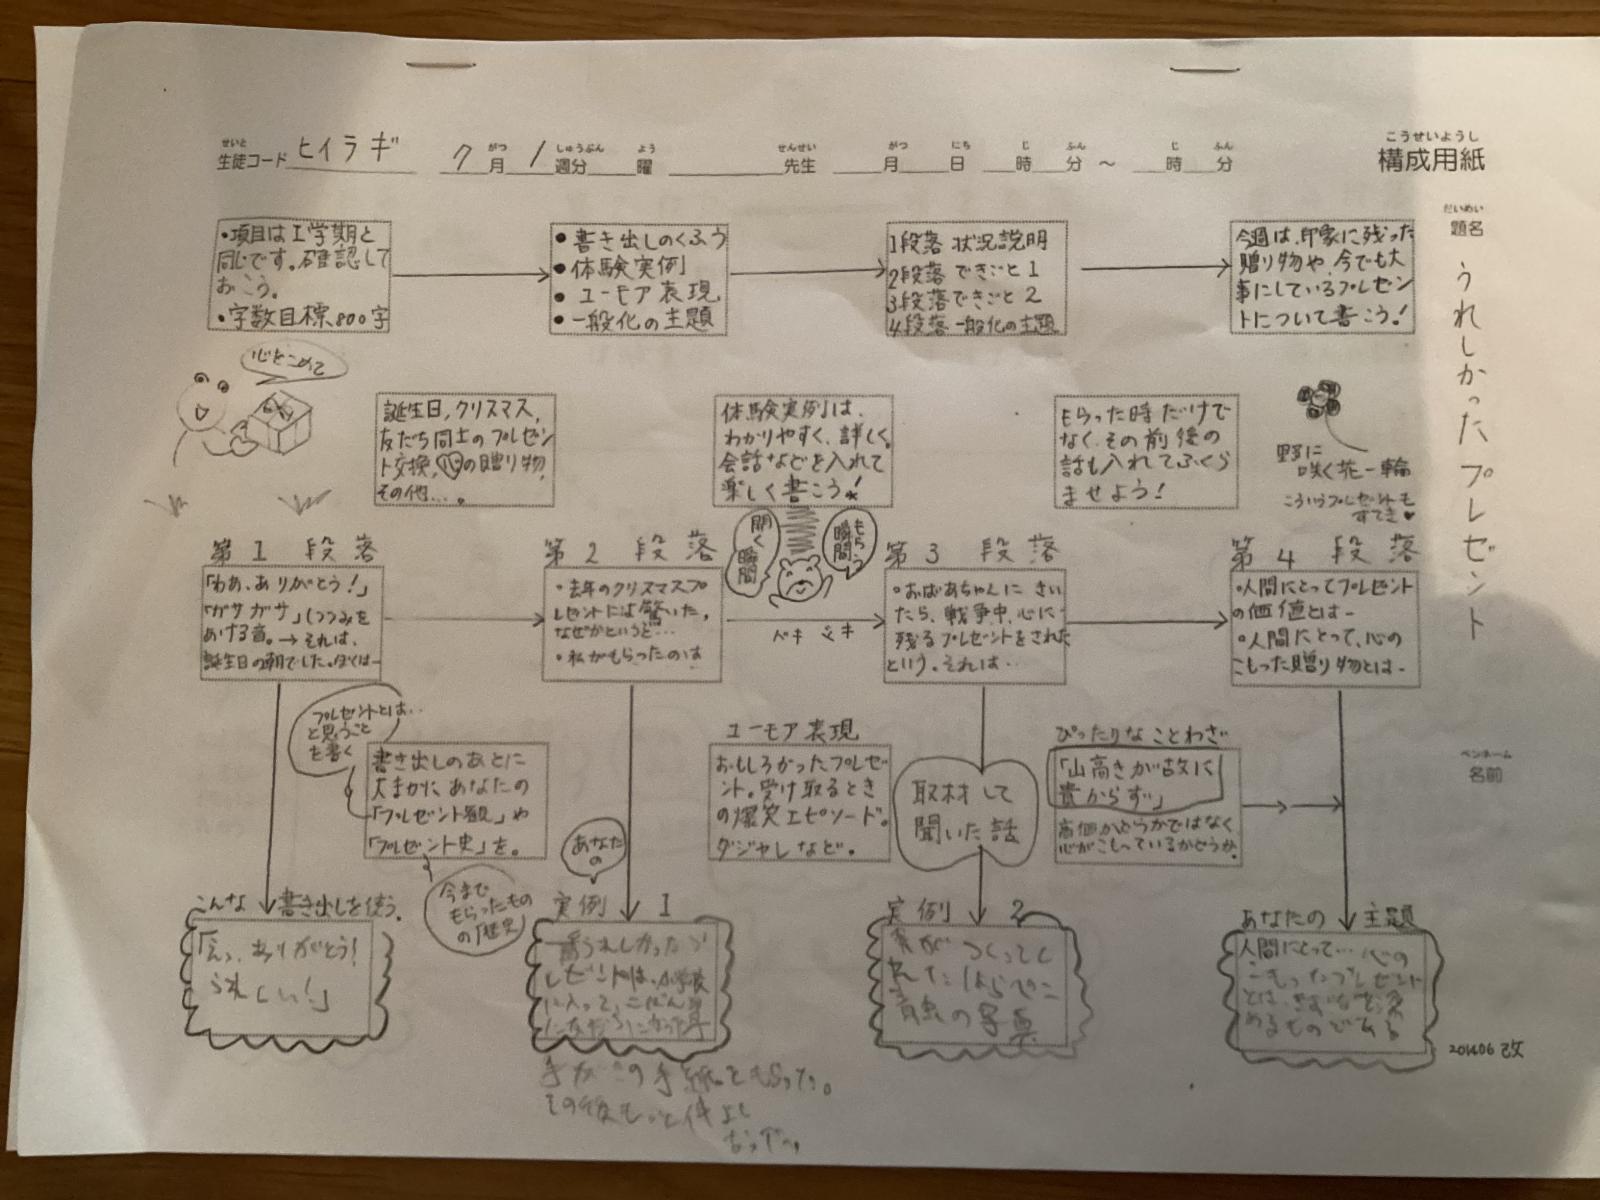 こうせいようし
構成用紙
せいと
生徒コード ヒイラギ
がつ しゅうぶん よう せんせい がつ にち じ ふん じ ふん
7月 1週分 曜 先生 月 日 時 分 〜 時 分
だいめい
題名
うれしかったプレゼント
ペンネーム
名前
・項目は1学期と
同じです。確認して
おこう。
・字数目標800字
・書き出しのくふう
・体験実例
・ユーモア表現
・一般化の主題
1段落 状況説明
2段落 できごと1
3段落できごと2
4段落 一般化の主題
今週は、印象に残った
贈り物や、今でも大
事にしているプレゼン
トについて書こう!
心をこめて
誕生日、クリスマス、
友だち同士のプレゼン
ト交換、心の贈り物、
その他…。
体験実例」は、
わかりやすく、詳しく。
会話などを入れて
楽しく書こう!
もらった時だけで
なく、その前後の
話も入れてふくら
ませよう!
野に
咲く花一輪
こういうプレゼントも
すてき♥
第1段落
「わあ、ありがとう!」
「ガサガサ」(つつみを
あける音。→それは、
誕生日の朝でした。ぼくは―
第2段落
・去年のクリスマスプ
レゼントには驚いた。
なぜかというと…
・私がもらったのは
開く
瞬間
もらう
瞬間
第3段落
・おばあちゃんにきい
たら、戦争中、心に
残るプレゼントをされた
という。それは…
第4段落
・人間にとってプレゼント
の価値とは―
・人間にとって、心の
こもった贈り物とは―
プレゼントとは…
と思うこと
を書く
書き出しのあとに
大まかにあなたの
「プレゼント観」や
「プレゼント史」を。
今まで
もらったもの
の「歴史」
ユーモア表現
おもしろかったプレゼ
ント。受け取るときの
の爆笑エピソード。
ダジャレなど。
取材して
聞いた話
ぴったりなことわざ
「山高きが故に
貴からず」
高価かどうかではなく
心がこもっているかどうか。
こんな書き出しを使う。
「えっ、ありがとう!
うれしい!」
あなたの
実例1
一番うれしかったプ
レゼントは、小学校
に入って、
手紙をもらった。
その後もっと仲よく
実例2
つくってく
れたはらぺこ
青虫の写真
あなたの主題
人間にとって…心の
こもったプレゼント
とは、きずなを深
めるものである
201406改